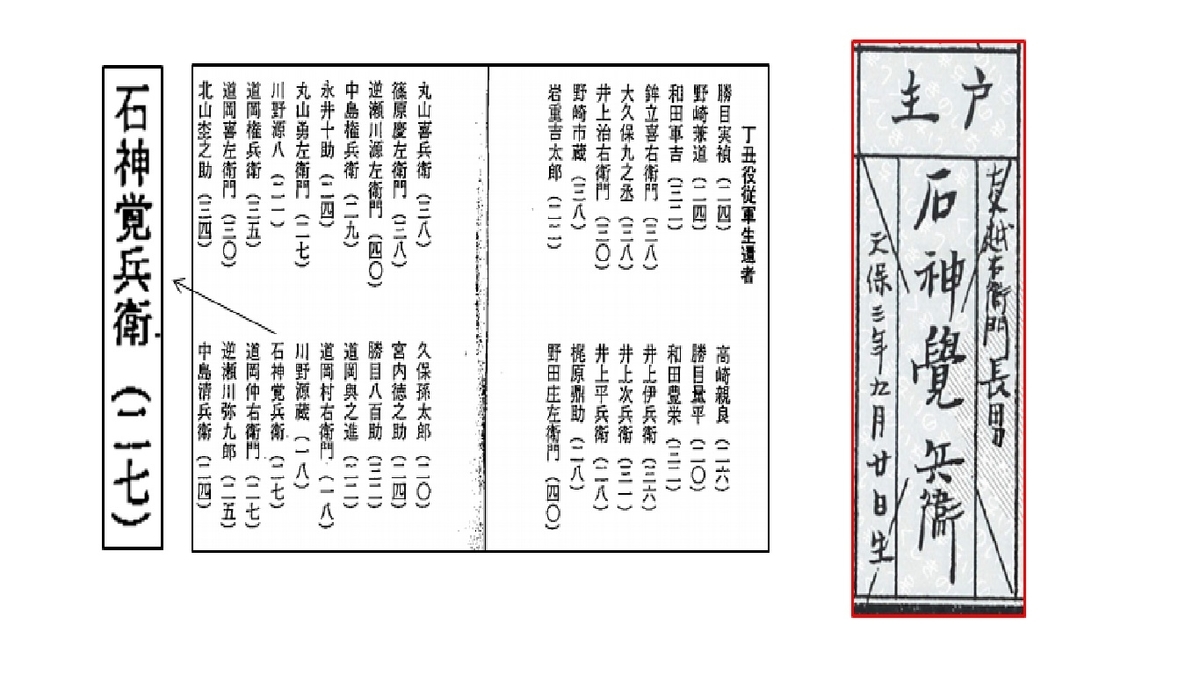 石神覚兵衛（二七）
丁丑役従軍生還者
勝目実禎（二四）
野崎兼道（二四）
和田軍吉（三二）
鉾立喜右衛門（三八）
大久保九之丞（二八）
井上治右衛門（二〇）
野崎市蔵（三八）
岩重吉太郎（二二）
高崎親良（二六）
勝目量平（二〇）
和田豊栄（三二）
井上伊兵衛（三六）
井上次兵衛（三一）
井上平兵衛（二八）
梶原鼎助（二八）
野田庄左衛門（四〇）
丸山喜兵衛（三八）
篠原慶左衛門（三八）
逆瀬川源左衛門（四〇）
中島権兵衛（二九）
永井十助（二四）
丸山勇左衛門（二七）
川野源八（二一）
道岡権兵衛（三五）
道岡喜左衛門（三〇）
北山杢之助（三四）
久保孫太郎（二〇）
宮内徳之助（二四）
勝目八百助（三二）
道岡與之進（二二）
道岡村右衛門（一八）
川野源蔵（一八）
石神覚兵衛（二七）
道岡仲右衛門（二七）
逆瀬川弥九郎（二五）
中島清兵衛（二四）
戸主
亡父越右衛門長男
石神覺兵衛
天保三年九月廿日生